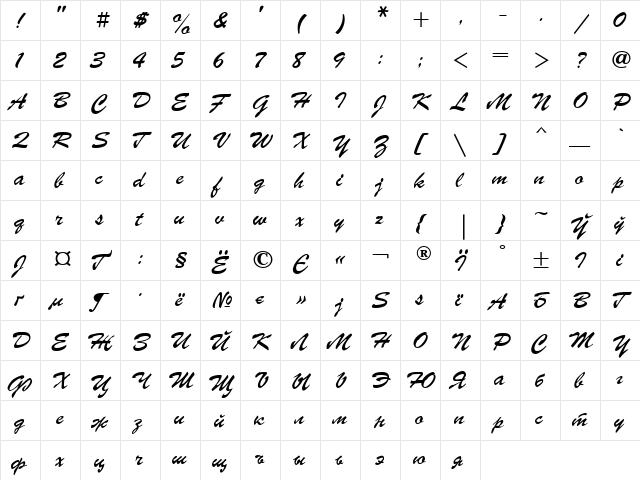 ! " # $ % & ' ( ) * + , - . / 0
1 2 3 4 5 6 7 8 9 : ; < = > ? @
A B C D E F G H I J K L M N O P
Q R S T U V W X Y Z [ \ ] ^ _ `
a b c d e f g h i j k l m n o p
q r s t u v w x y z { | } ~ Ў ў
Ј ¤ Ґ : § Ё © Є « ¬ ® Ї ° ± І і
ґ µ ¶ · ё № є » ј Ѕ ѕ ї А Б В Г
Д Е Ж З И Й К Л М Н О П Р С Т У
Ф Х Ц Ч Ш Щ Ъ Ы Ь Э Ю Я а б в г
д е ж з и й к л м н о п р с т у
ф х ц ч ш щ ъ ы ь э ю я